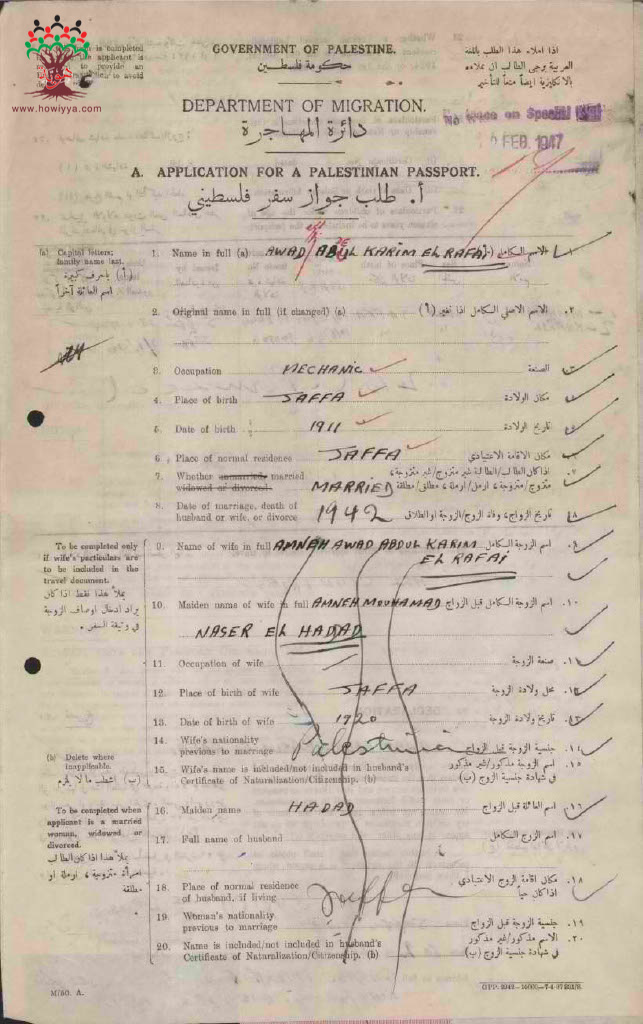 www.howiyya.com
GOVERNMENT OF PALESTINE.
حكومة فلسطين
اذا املاء هذا الطلب باللغة
العربية يرجى الطالب ان يملاءه
بالانكليزية ايضاً منعاً للتأخير
DEPARTMENT OF MIGRATION.
دائرة المهاجرة
on Special
FEB. 1947
A. APPLICATION FOR A PALESTINIAN PASSPORT.
أ. طلب جواز سفر فلسطيني
(a) Capital letters; family name last.
(أ) باحرف كبيرة
اسم العائلة آخراً
1. Name in full (a) AWAD ABDUL KARIM EL RAFAI الاسم الكامل (أ) ١.
2. Original name in full (if changed) (a) الاسم الاصلي الكامل اذا تغير (أ) ٢.
3. Occupation MECHANIC الصنعة ٣.
4. Place of birth JAFFA مكان الولادة ٤.
5. Date of birth 1911 تاريخ الولادة ٥.
6. Place of normal residence JAFFA مكان الاقامة الاعتيادي ٦.
7. Whether unmarried, married اذا كان الطالب/الطالبة غير متزوج/غير متزوجة، ٧.
widowed or divorced. MARRIED متزوج/متزوجة، ارمل/ارملة، مطلق/مطلقة
8. Date of marriage, death of
husband or wife, or divorce 1942 تاريخ الزواج، وفاة الزوج/الزوجة او الطلاق ٨.
To be completed only
if wife's particulars are
to be included in the
travel document.
يملأ هذا فقط اذا كان
يراد ادخال اوصاف الزوجة
في وثيقة السفر.
9. Name of wife in full AMNEH AWAD ABDUL KARIM اسم الزوجة الكامل ٩.
EL RAFAI
10. Maiden name of wife in full AMNEH MOUHAMAD اسم الزوجة الكامل قبل الزواج ١٠.
NASER EL HADAD
11. Occupation of wife صنعة الزوجة ١١.
12. Place of birth of wife JAFFA محل ولادة الزوجة ١٢.
13. Date of birth of wife 1920 تاريخ ولادة الزوجة ١٣.
14. Wife's nationality
previous to marriage Palestinian جنسية الزوجة قبل الزواج ١٤.
(b) Delete where
inapplicable.
(ب) اشطب ما لا يلزم
15. Wife's name is included/not included in husband's اسم الزوجة مذكور/غير مذكور ١٥.
Certificate of Naturalization/Citizenship. (b) في شهادة جنسية الزوج (ب)
To be completed when
applicant is a married
woman, widowed or
divorced.
يملأ هذا اذا كان الطالب
امرأة متزوجة، ارملة او
مطلقة
16. Maiden name HADAD اسم العائلة قبل الزواج ١٦.
17. Full name of husband اسم الزوج الكامل ١٧.
18. Place of normal residence مكان اقامة الزوج الاعتيادي ١٨.
of husband, if living Jaffa اذا كان حياً
19. Woman's nationality
previous to marriage جنسية الزوجة قبل الزواج ١٩.
20. Name is included/not included in husband's الاسم مذكور/غير مذكور ٢٠.
Certificate of Naturalization/Citizenship. (b) في شهادة جنسية الزوج (ب)
M/80. A.